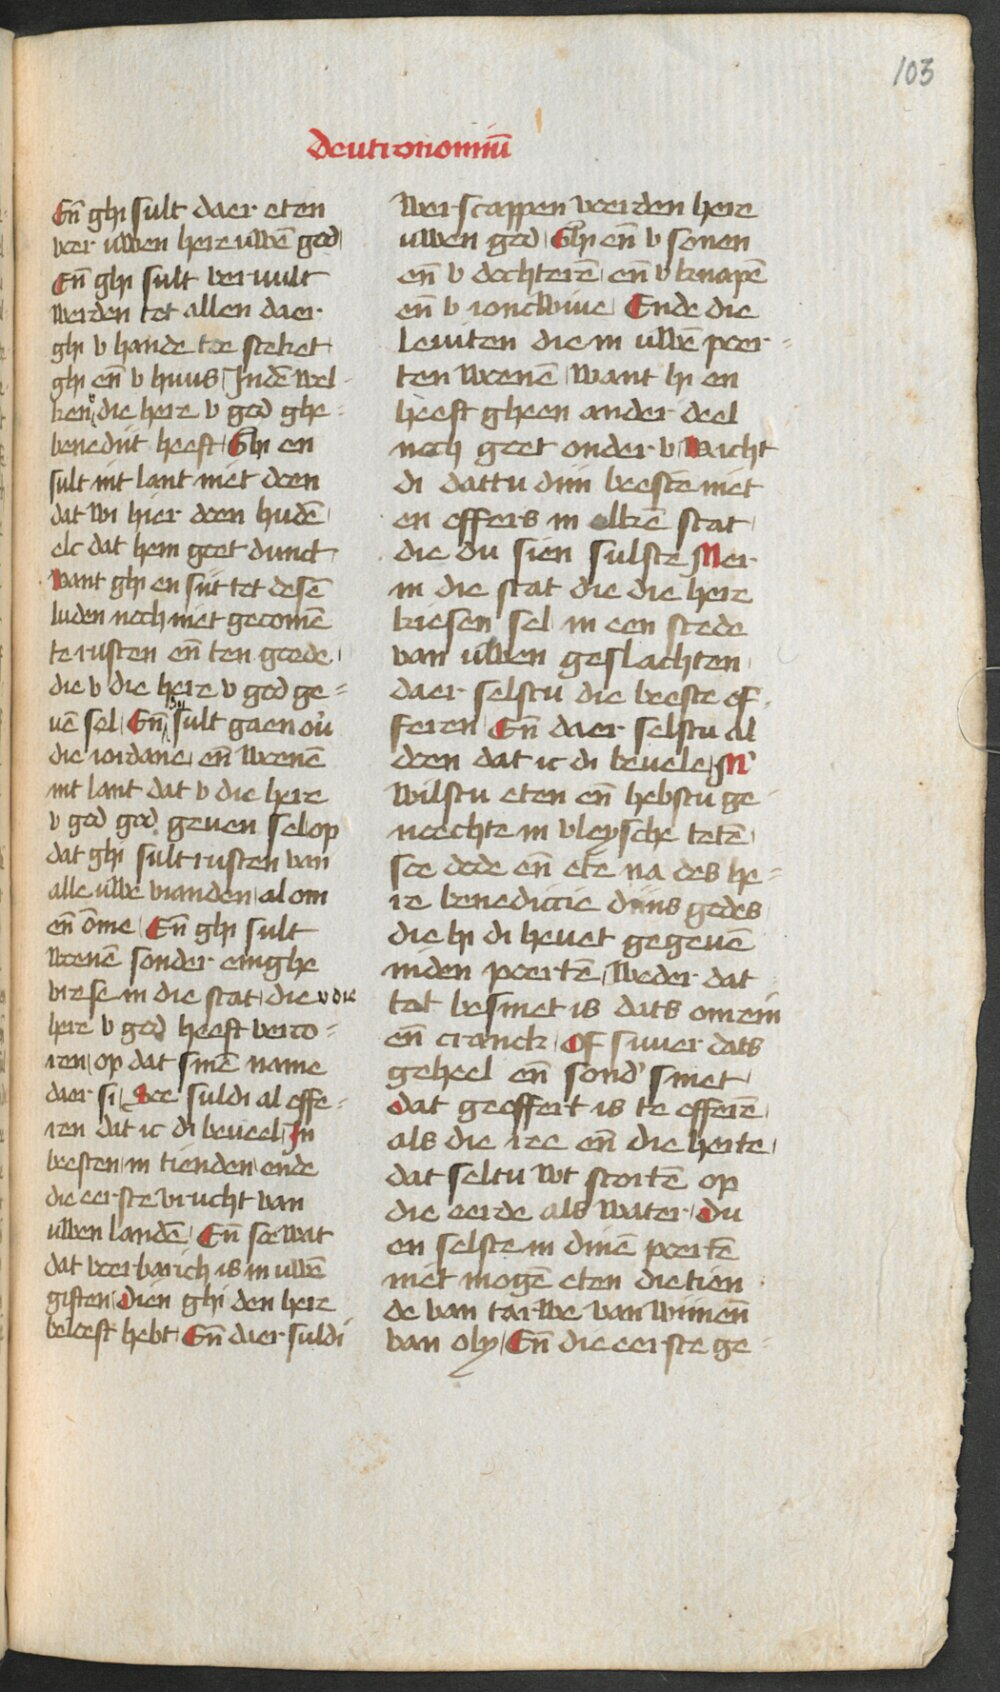 103
deutronomiū
Eñ ghi sult daer eten
voer uwen here uwē god
Eñ ghi sult vervult
werden tot allen daer
ghi v hande toe steket
ghi eñ v huus Indē wel-
ken die here v god ghe-
benediit heeft Ghi en
sult int lant niet doen
dat wi hier doen hudē
elc dat hem goet dunct
Want ghi en siit tot desē
luden noch niet gecomē
te rusten eñ ten goede
die v die here v god ge-
uē sel Eñ sult gaen ou̓
die iordane eñ woenē
int lant dat v die here
v god god geuen sel op
dat ghi sult rusten van
alle uwe vianden al om
eñ ōme Eñ ghi sult
woenē sonder einghe
vrese in die stat die v die
here v god heeft verco-
ren op dat sinē name
daer si Dee suldi al offe-
ren dat ic di beveel In
beesten in tienden ende
die eerste vrucht van
uwen landē Eñ soe wat
dat voerbarich is in uwē
giften Dien ghi den here
beloeft hebt Eñ daer suldi
werscappen voer den here
uwen god Ghi eñ v sonen
eñ v dochterē eñ v knapē
eñ v ioncwiue Ende die
leuiten die in uwē poer-
ten woenē want hi en
heeft gheen ander deel
noch goet onder v Wacht
di dattu diin beestē niet
en offers in elkē stat
die du sien sulste Mer
in die stat die die here
kiesen sel in een stede
van uwen geslachten
daer selstu die beeste of-
feren Eñ daer selstu al
doen dat ic di beuele M'
wilstu eten eñ hebstu ge-
noechte in vleysche totē
soe dode eñ ete na des he-
re benedictie diins godes
die hi di hevet gegeuē
in den poertē weder dat
tot besmet is dats onrein
eñ cranck Of suuer dats
geheel eñ sond' smet
Dat geoffert is te offerē
als die ree eñ die herte
dat seltu wt stortē op
die eerde als water Du
en selste in dinē poertē
niet mogē eten die tien-
de van tarwe van wiineñ
van oly Eñ die eerste ge-